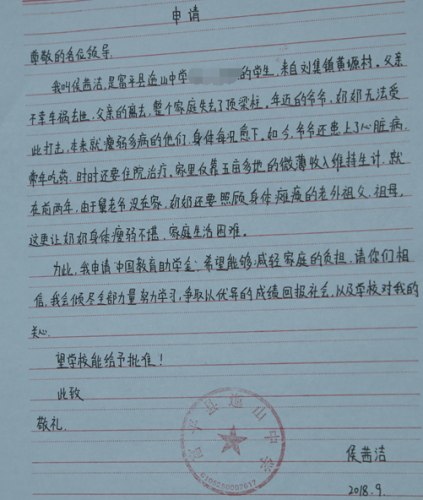 申请
尊敬的各位领导:
我叫侯茜洁,是富平县迤山中学 的学生,来自刘集镇黄塬村。父亲
不幸车祸去世,父亲的离去,整个家庭失去了顶梁柱。年迈的爷爷,奶奶无法受
此打击,本来就瘦弱多病的他们,身体每况愈下。如今,爷爷还患上了心脏病,
常年吃药,时时还要住院治疗,家里仅靠五亩多地的微薄收入维持生计,就
在前两年,由于舅老爷没在家,奶奶还要照顾身体瘫痪的老外祖父,祖母,
这更让奶奶身体瘦弱不堪,家庭生活困难。
为此,我申请"中国教育助学会",希望能够减轻家庭的负担,请你们相
信,我会倾尽全部力量努力学习,争取以优异的成绩回报社会,以及学校对我的
关心。
望学校能给予批准!
此致
敬礼.
富平县迤山中学
侯茜洁
2018.9.